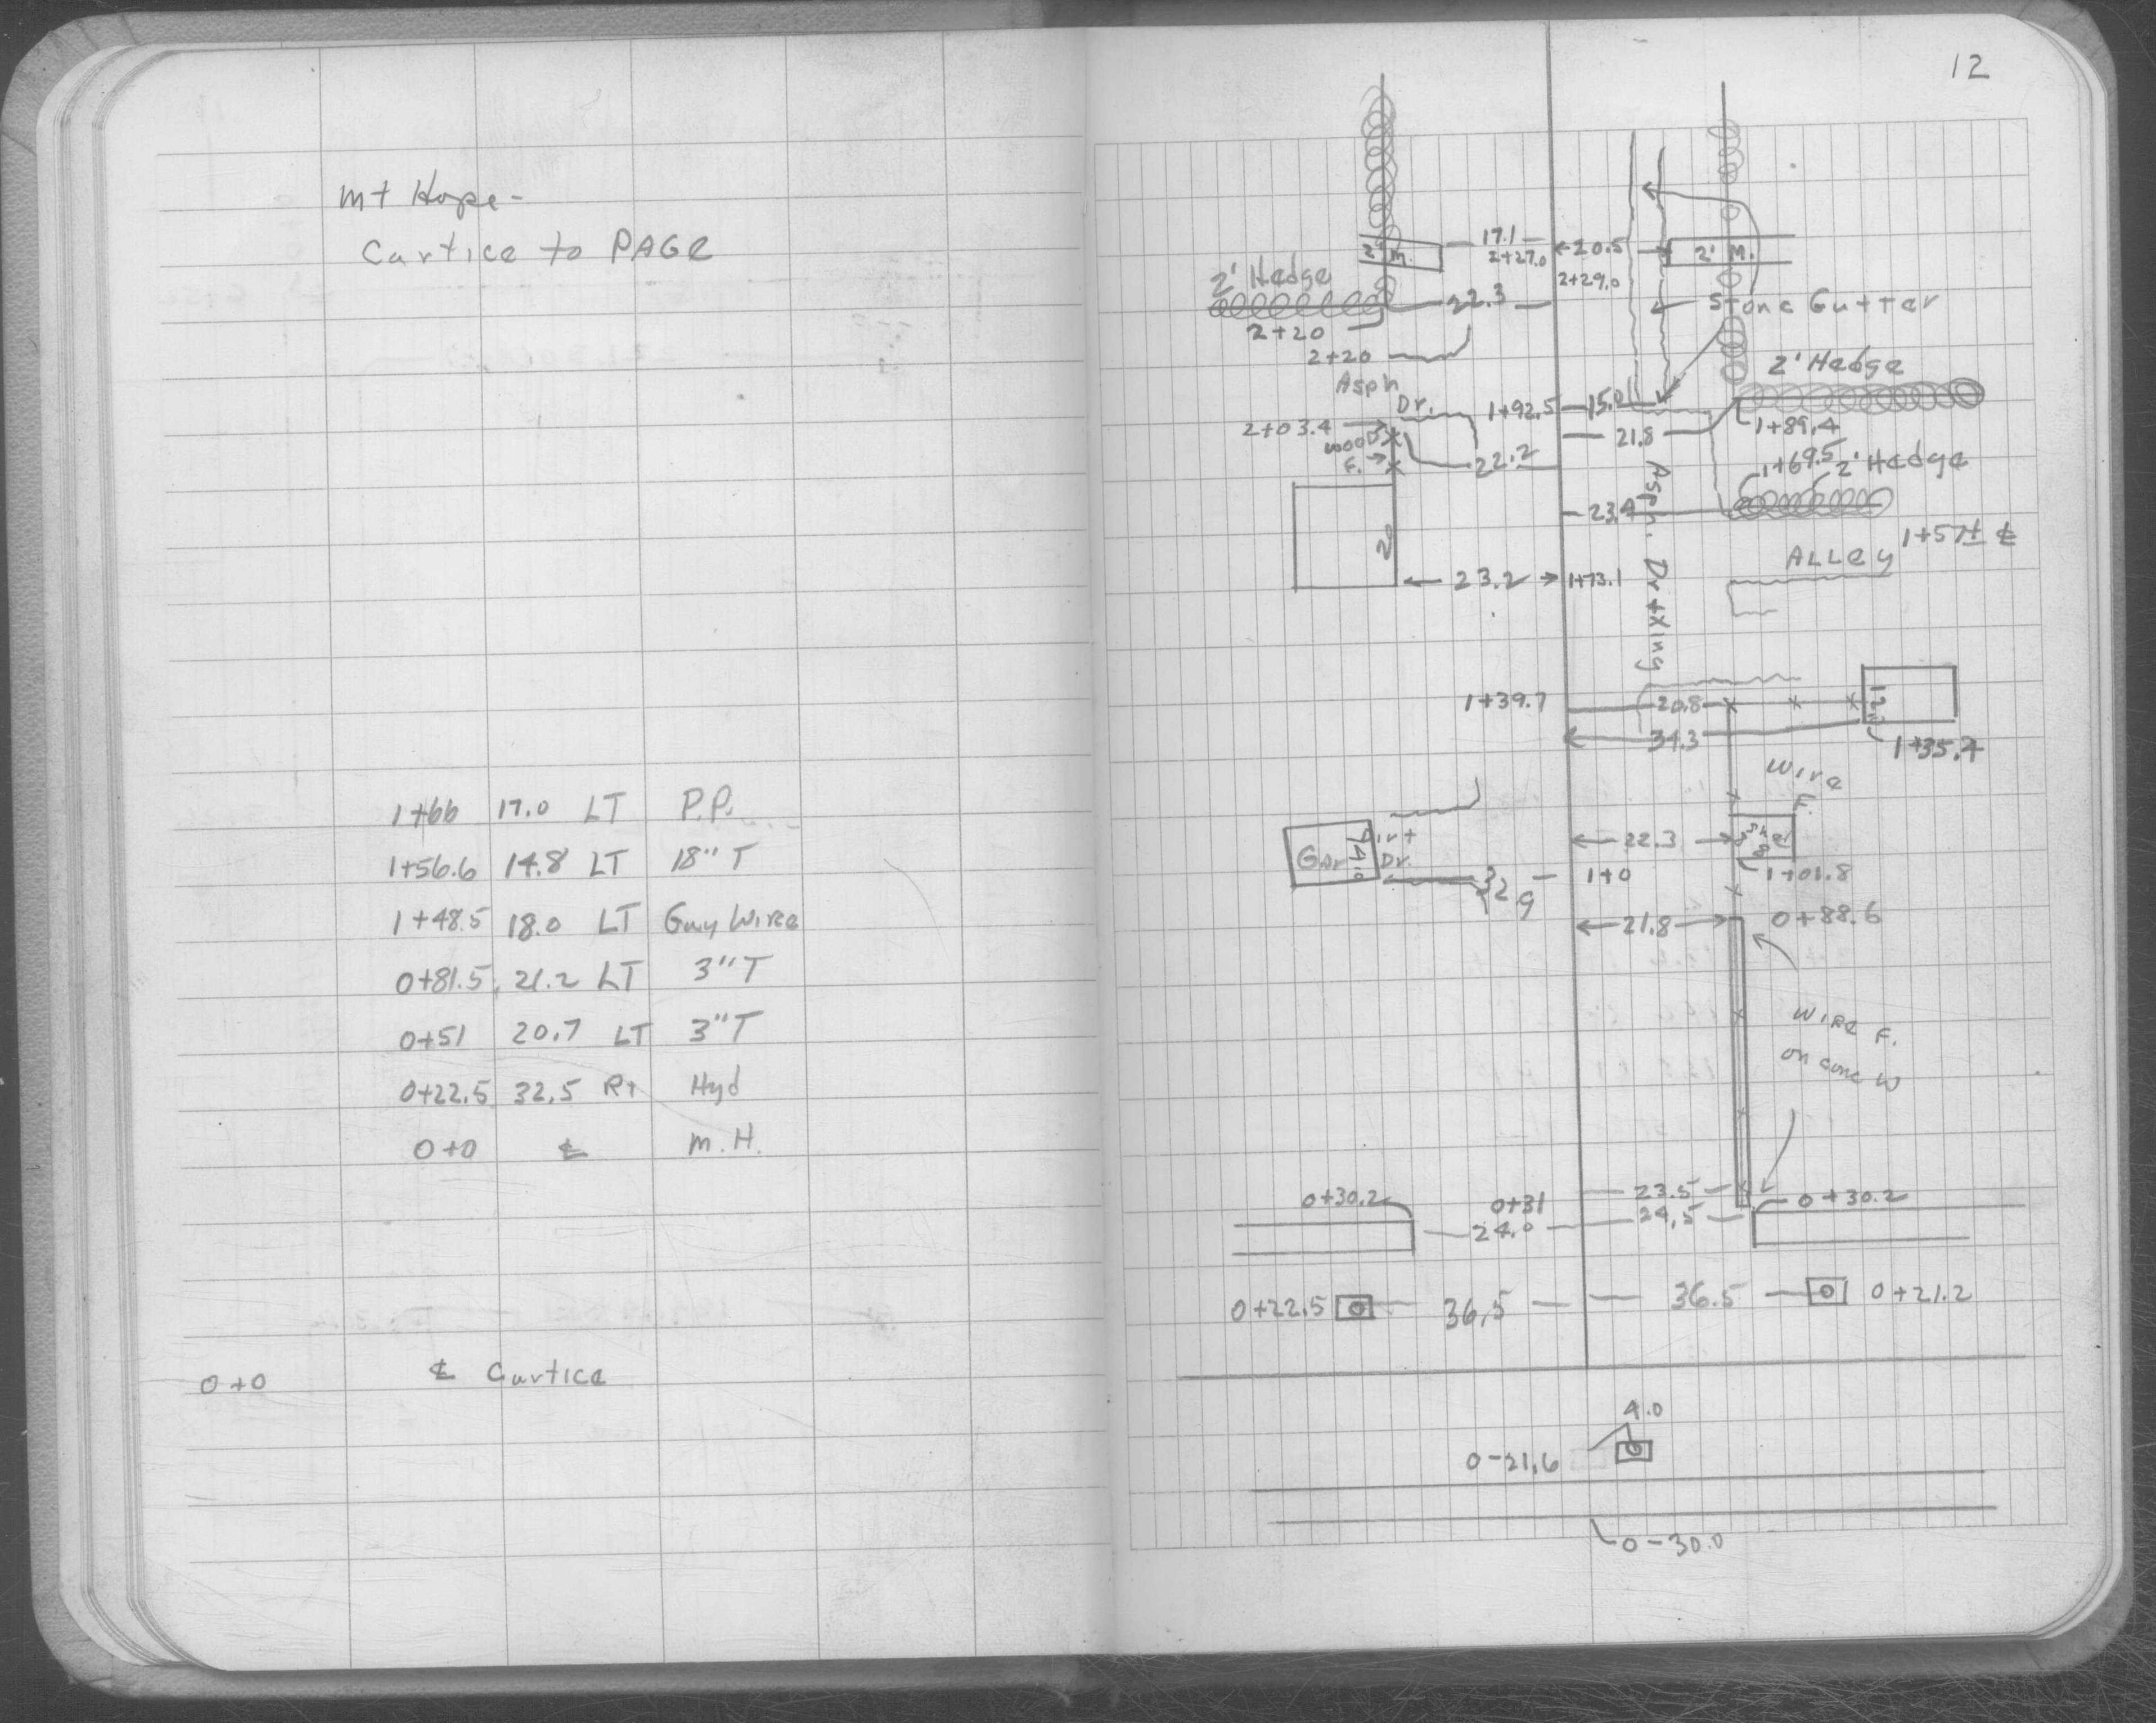 Mt Hope -
Curtice to PAGE
1+66 17.0 LT P.P.
1+56.6 14.8 LT 18" T
1+48.5 18.0 LT Guy Wire
0+81.5 21.2 LT 3" T
0+51 20.7 LT 3" T
0+22.5 32.5 Rt Hyd
0+0 ℄ M.H.
0+0 ℄ Curtice
12
17.1
2+27.0
20.5
2+29.0
2' M.
2' M.
2' Hedge
22.3
Stone Gutter
2+20
2+20
2' Hedge
Asph
Dr.
1+92.5
15.0
2+03.4
21.8
1+89.4
WOOD
F.
22.2
1+69.5
2' Hedge
23.4
Asph. Dr + Xing
20
1+57± ℄
ALLey
23.2
1+73.1
1+39.7
20.8
34.3
1+35.4
Wire
F.
Gar
Dirt
Dr.
22.3
Shed
1+0
1+01.8
32.9
21.8
0+88.6
WIRE F.
on conc W
0+30.2
0+31
23.5
0+30.2
24.0
24.5
0+22.5
36.5
36.5
0+21.2
4.0
0-21.6
0-30.0